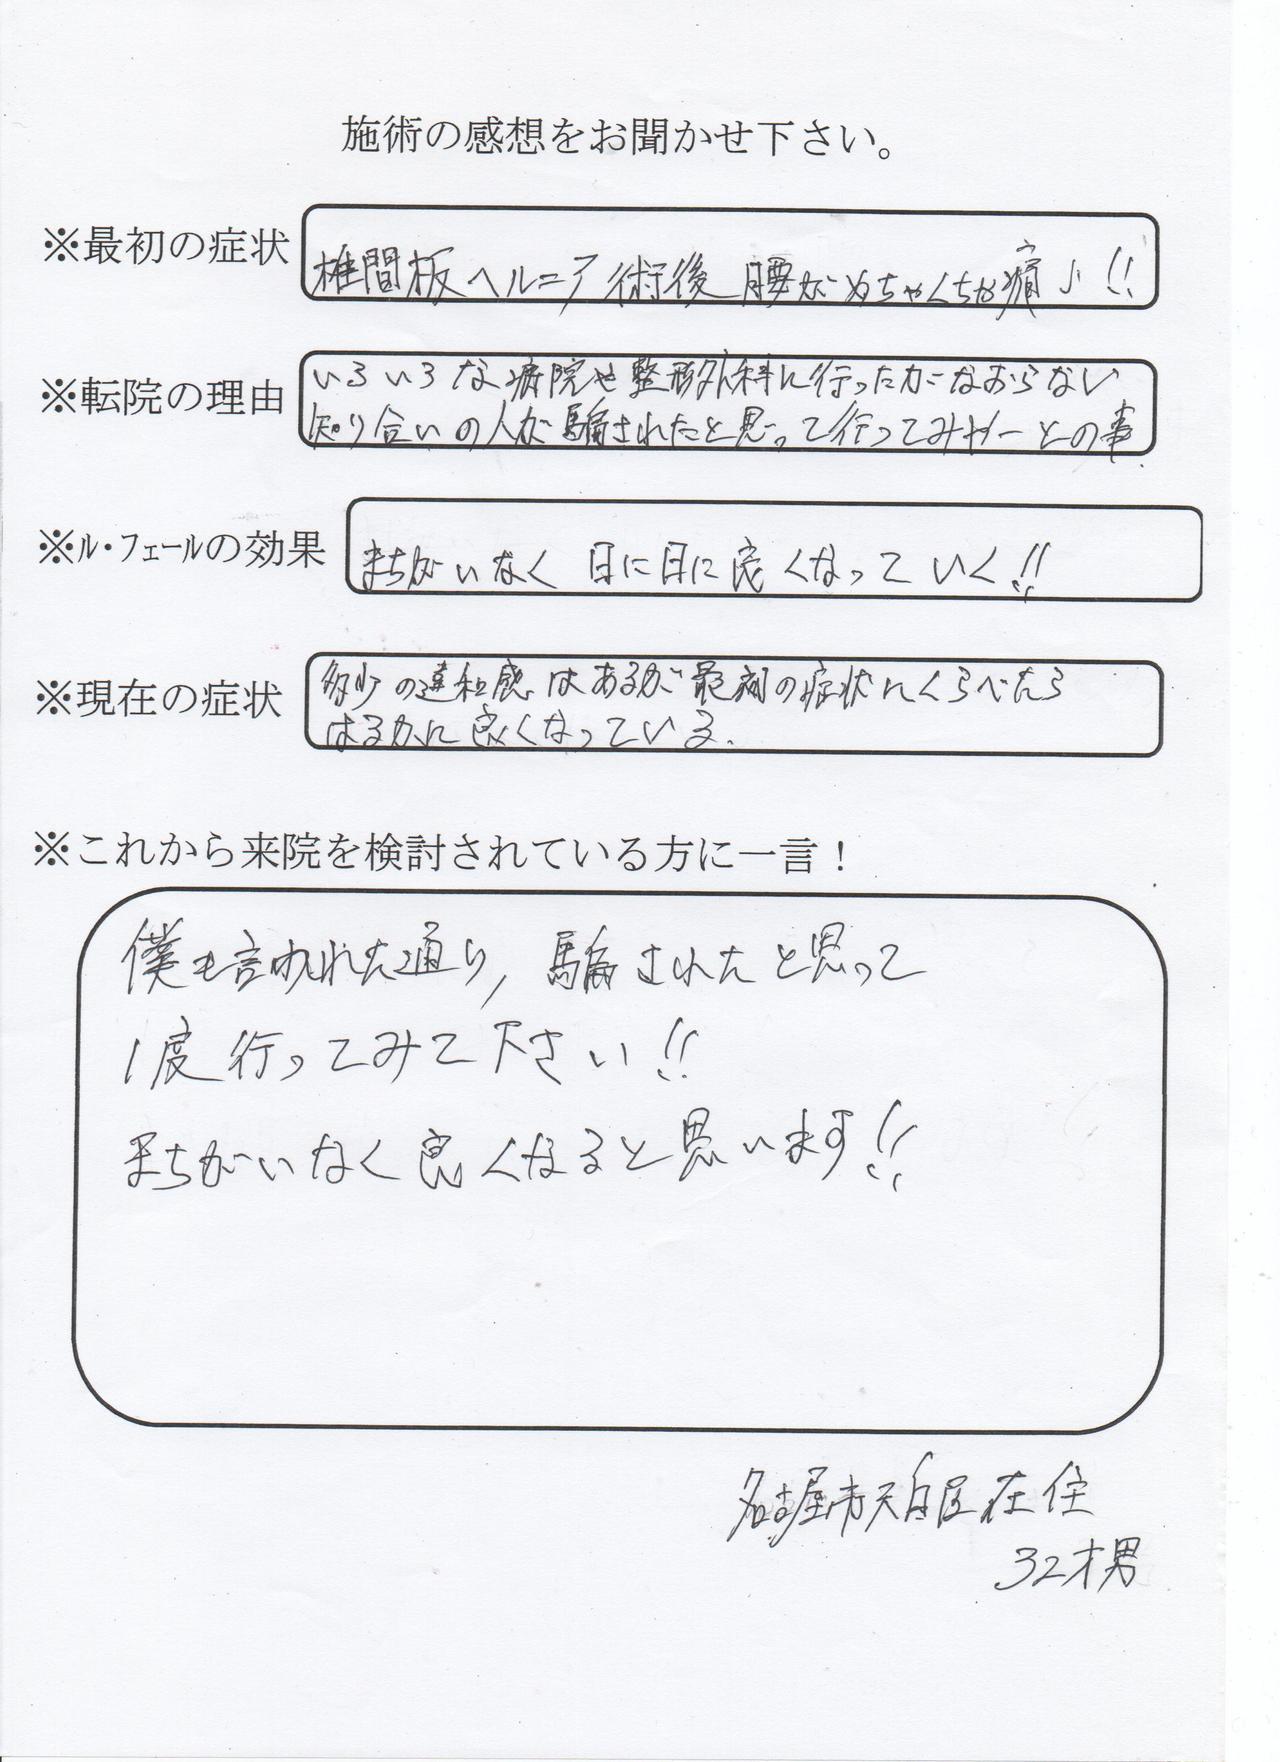 施術の感想をお聞かせ下さい。
※最初の症状
椎間板ヘルニア術後 腰がめちゃくちゃ痛い!!
※転院の理由
いろいろな病院や整形外科に行ったがなおらない
知り合いの人が騙されたと思って行ってみやーとの事.
※ル・フェールの効果
まちがいなく 日に日に良くなっていく!!
※現在の症状
多少の違和感はあるが最初の症状にくらべたら
はるかに良くなっている.
※これから来院を検討されている方に一言！
僕も言われた通り,騙されたと思って
1度行ってみて下さい!!
まちがいなく良くなると思います!!
名古屋市天白区在住
32才男